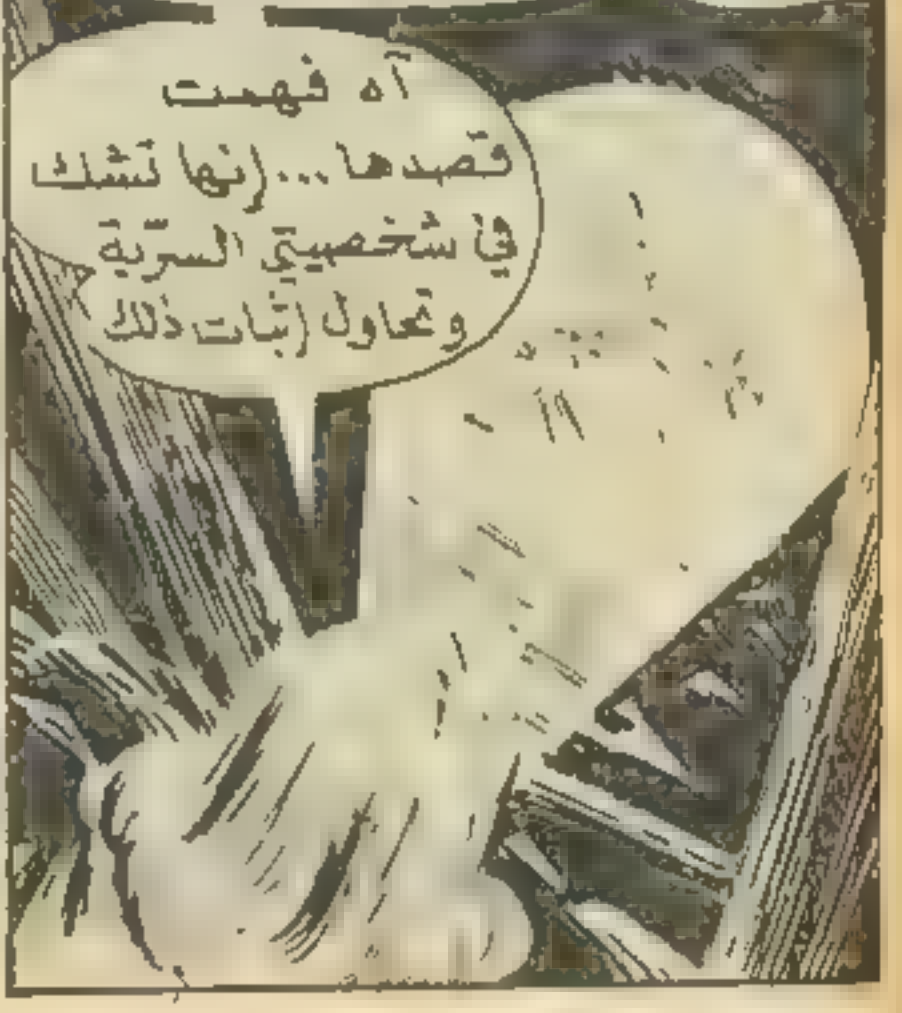 آه فهمت
قصدها...إنها تشك
في شخصيتي السرّية
وتحاول إثبات ذلك